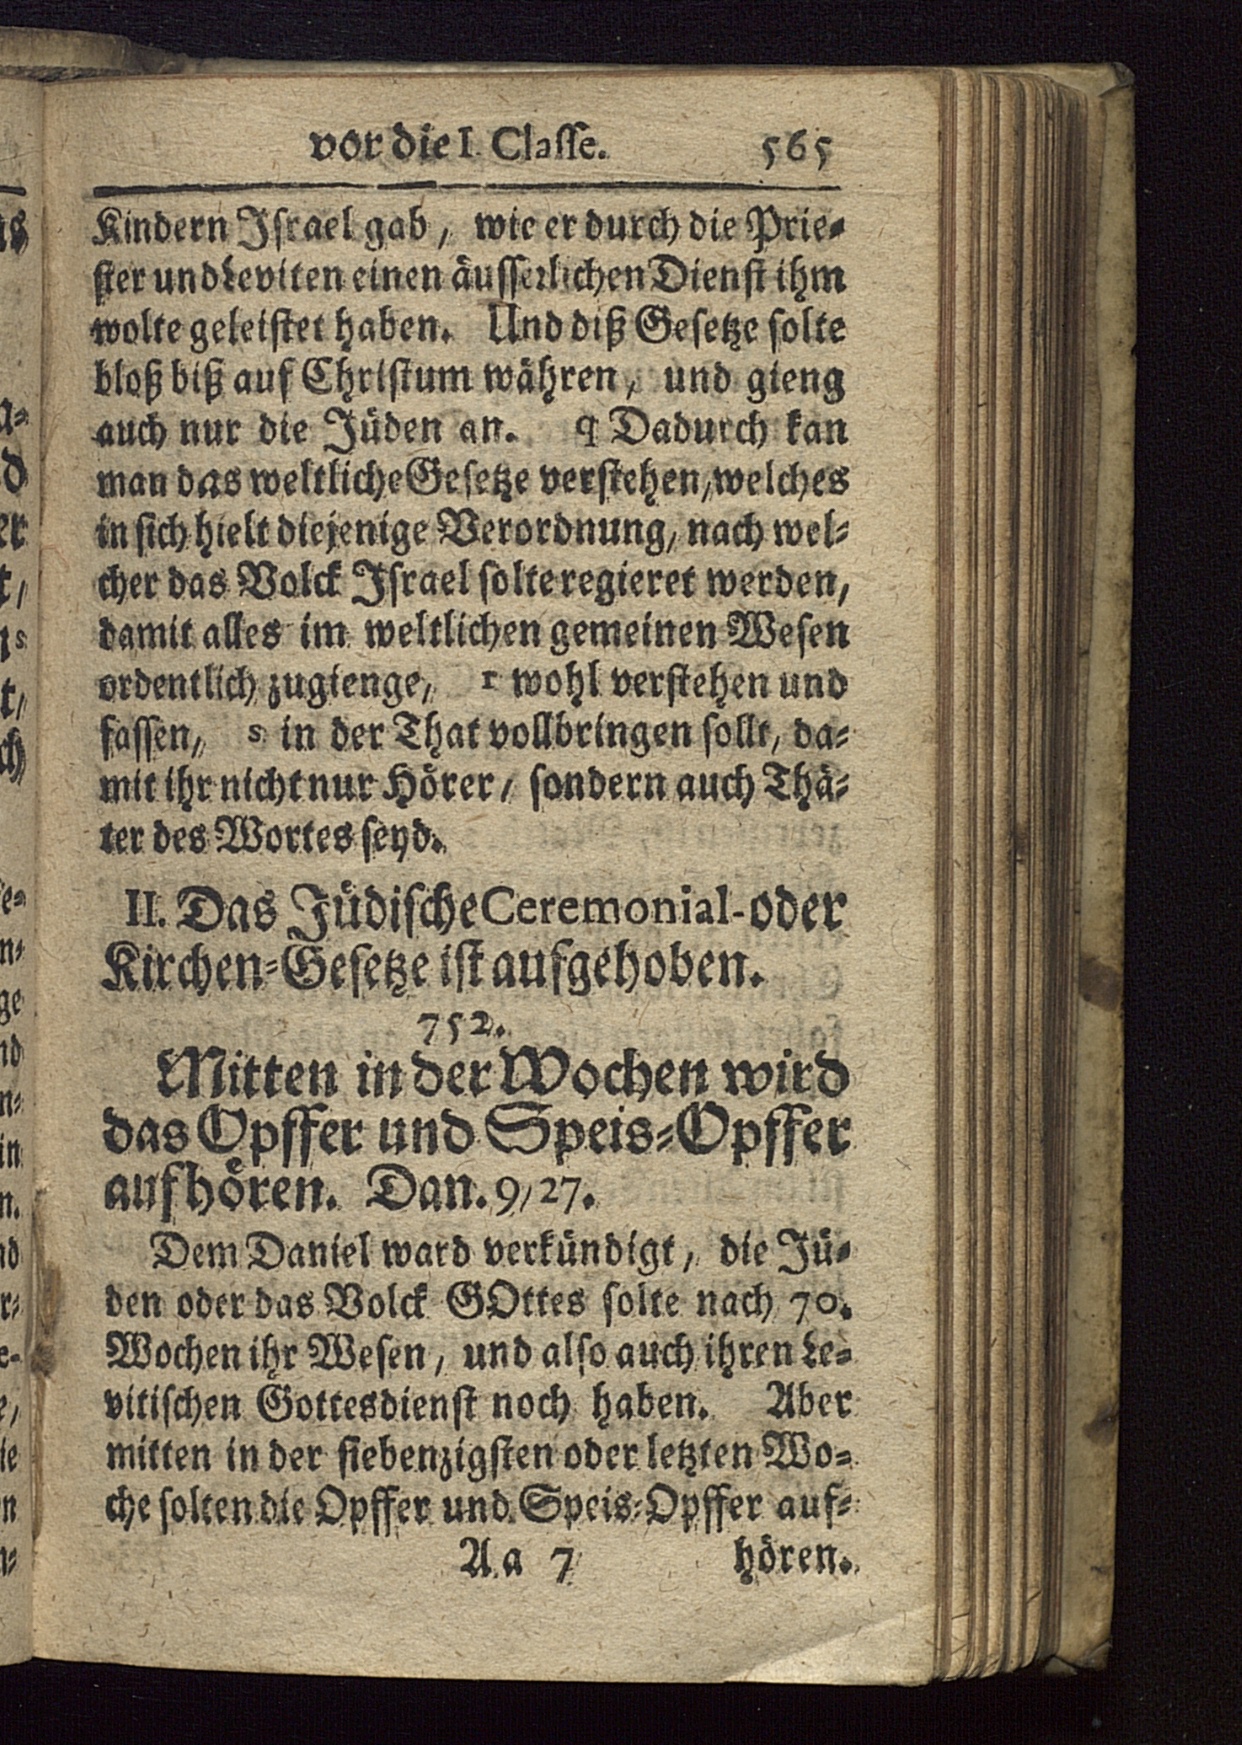 vor die I. Classe. 565
Kindern Israel gab, wie er durch die Prie-
ster und Leviten einen äusserlichen Dienst ihm
wolte geleistet haben. Und diß Gesetze solte
bloß biß auf Christum währen, und gieng
auch nur die Jüden an. q Dadurch kan
man das weltliche Gesetze verstehen, welches
in sich hielt diejenige Verordnung, nach wel-
cher das Volck Israel solte regieret werden,
damit alles im weltlichen gemeinen Wesen
ordentlich zugienge, r wohl verstehen und
fassen, s in der That vollbringen sollt, da-
mit ihr nicht nur Hörer, sondern auch Thä-
ter des Wortes seyd.
II. Das Jüdische Ceremonial- oder
Kirchen-Gesetze ist aufgehoben.
752.
Mitten in der Wochen wird
das Opffer und Speis-Opffer
aufhören. Dan. 9, 27.
Dem Daniel ward verkündigt, die Jü-
den oder das Volck GOttes solte nach 70.
Wochen ihr Wesen, und also auch ihren Le-
vitischen Gottesdienst noch haben. Aber
mitten in der siebenzigsten oder letzten Wo-
che solten die Opffer und Speis-Opffer auf-
Aa 7 hören.